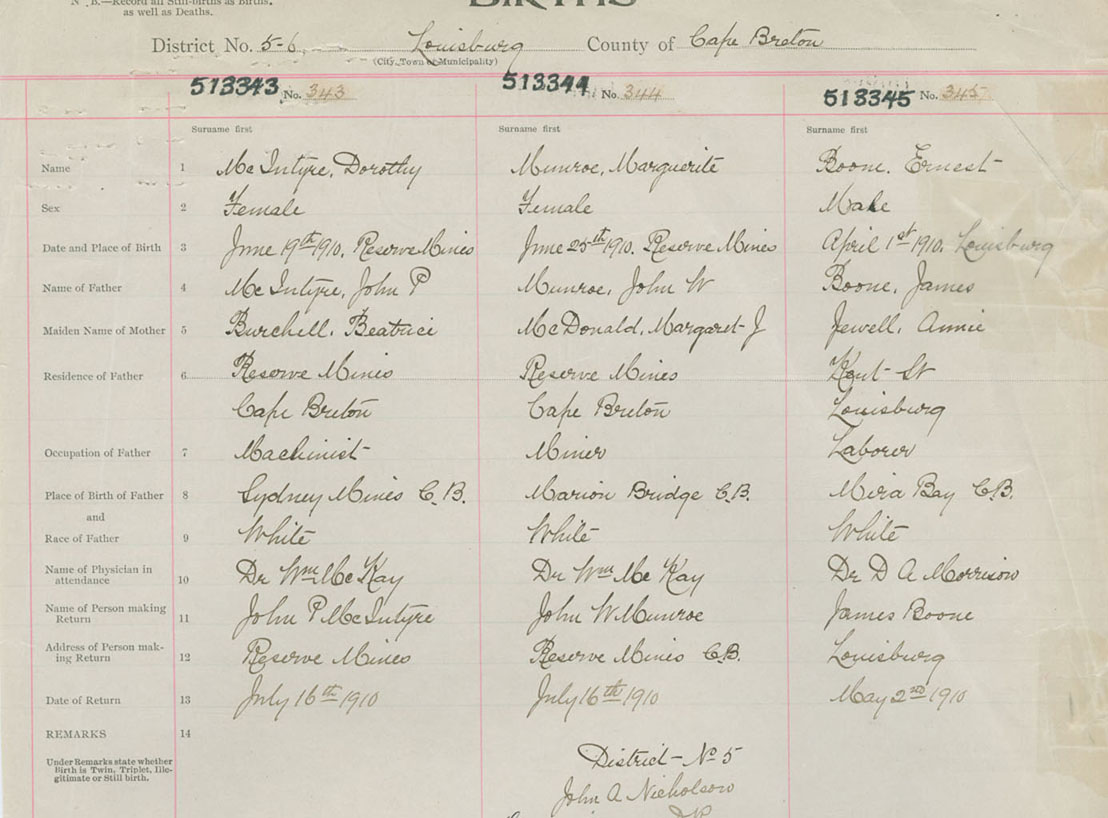 N. B.—Record all Still-births as Births,
as well as Deaths.
BIRTHS
District No. 5-6 Louisburg County of Cape Breton
(City, Town or Municipality)
513343 No. 343 513344 No. 344 513345 No. 345
Surname first Surname first Surname first
Name 1 McIntyre, Dorothy Munroe, Marguerite Boone, Ernest
Sex 2 Female Female Male
Date and Place of Birth 3 June 19th 1910. Reserve Mines June 25th 1910. Reserve Mines April 1st 1910. Louisburg
Name of Father 4 McIntyre, John P Munroe, John W Boone, James
Maiden Name of Mother 5 Burchell, Beatrice McDonald, Margaret J Jewell, Annie
Residence of Father 6 Reserve Mines Reserve Mines Kent St
Cape Breton Cape Breton Louisburg
Occupation of Father 7 Machinist Miner Laborer
Place of Birth of Father 8 Sydney Mines C.B. Marion Bridge C.B. Mira Bay C.B.
and
Race of Father 9 White White White
Name of Physician in
attendance 10 Dr Wm McKay Dr Wm McKay Dr D A Morrison
Name of Person making
Return 11 John P McIntyre John W Munroe James Boone
Address of Person mak-
ing Return 12 Reserve Mines Reserve Mines C.B. Louisburg
Date of Return 13 July 16th 1910 July 16th 1910 May 2nd 1910
REMARKS 14
Under Remarks state whether
Birth is Twin, Triplet, Ille-
gitimate or Still birth.
District No 5
John A Nicholson